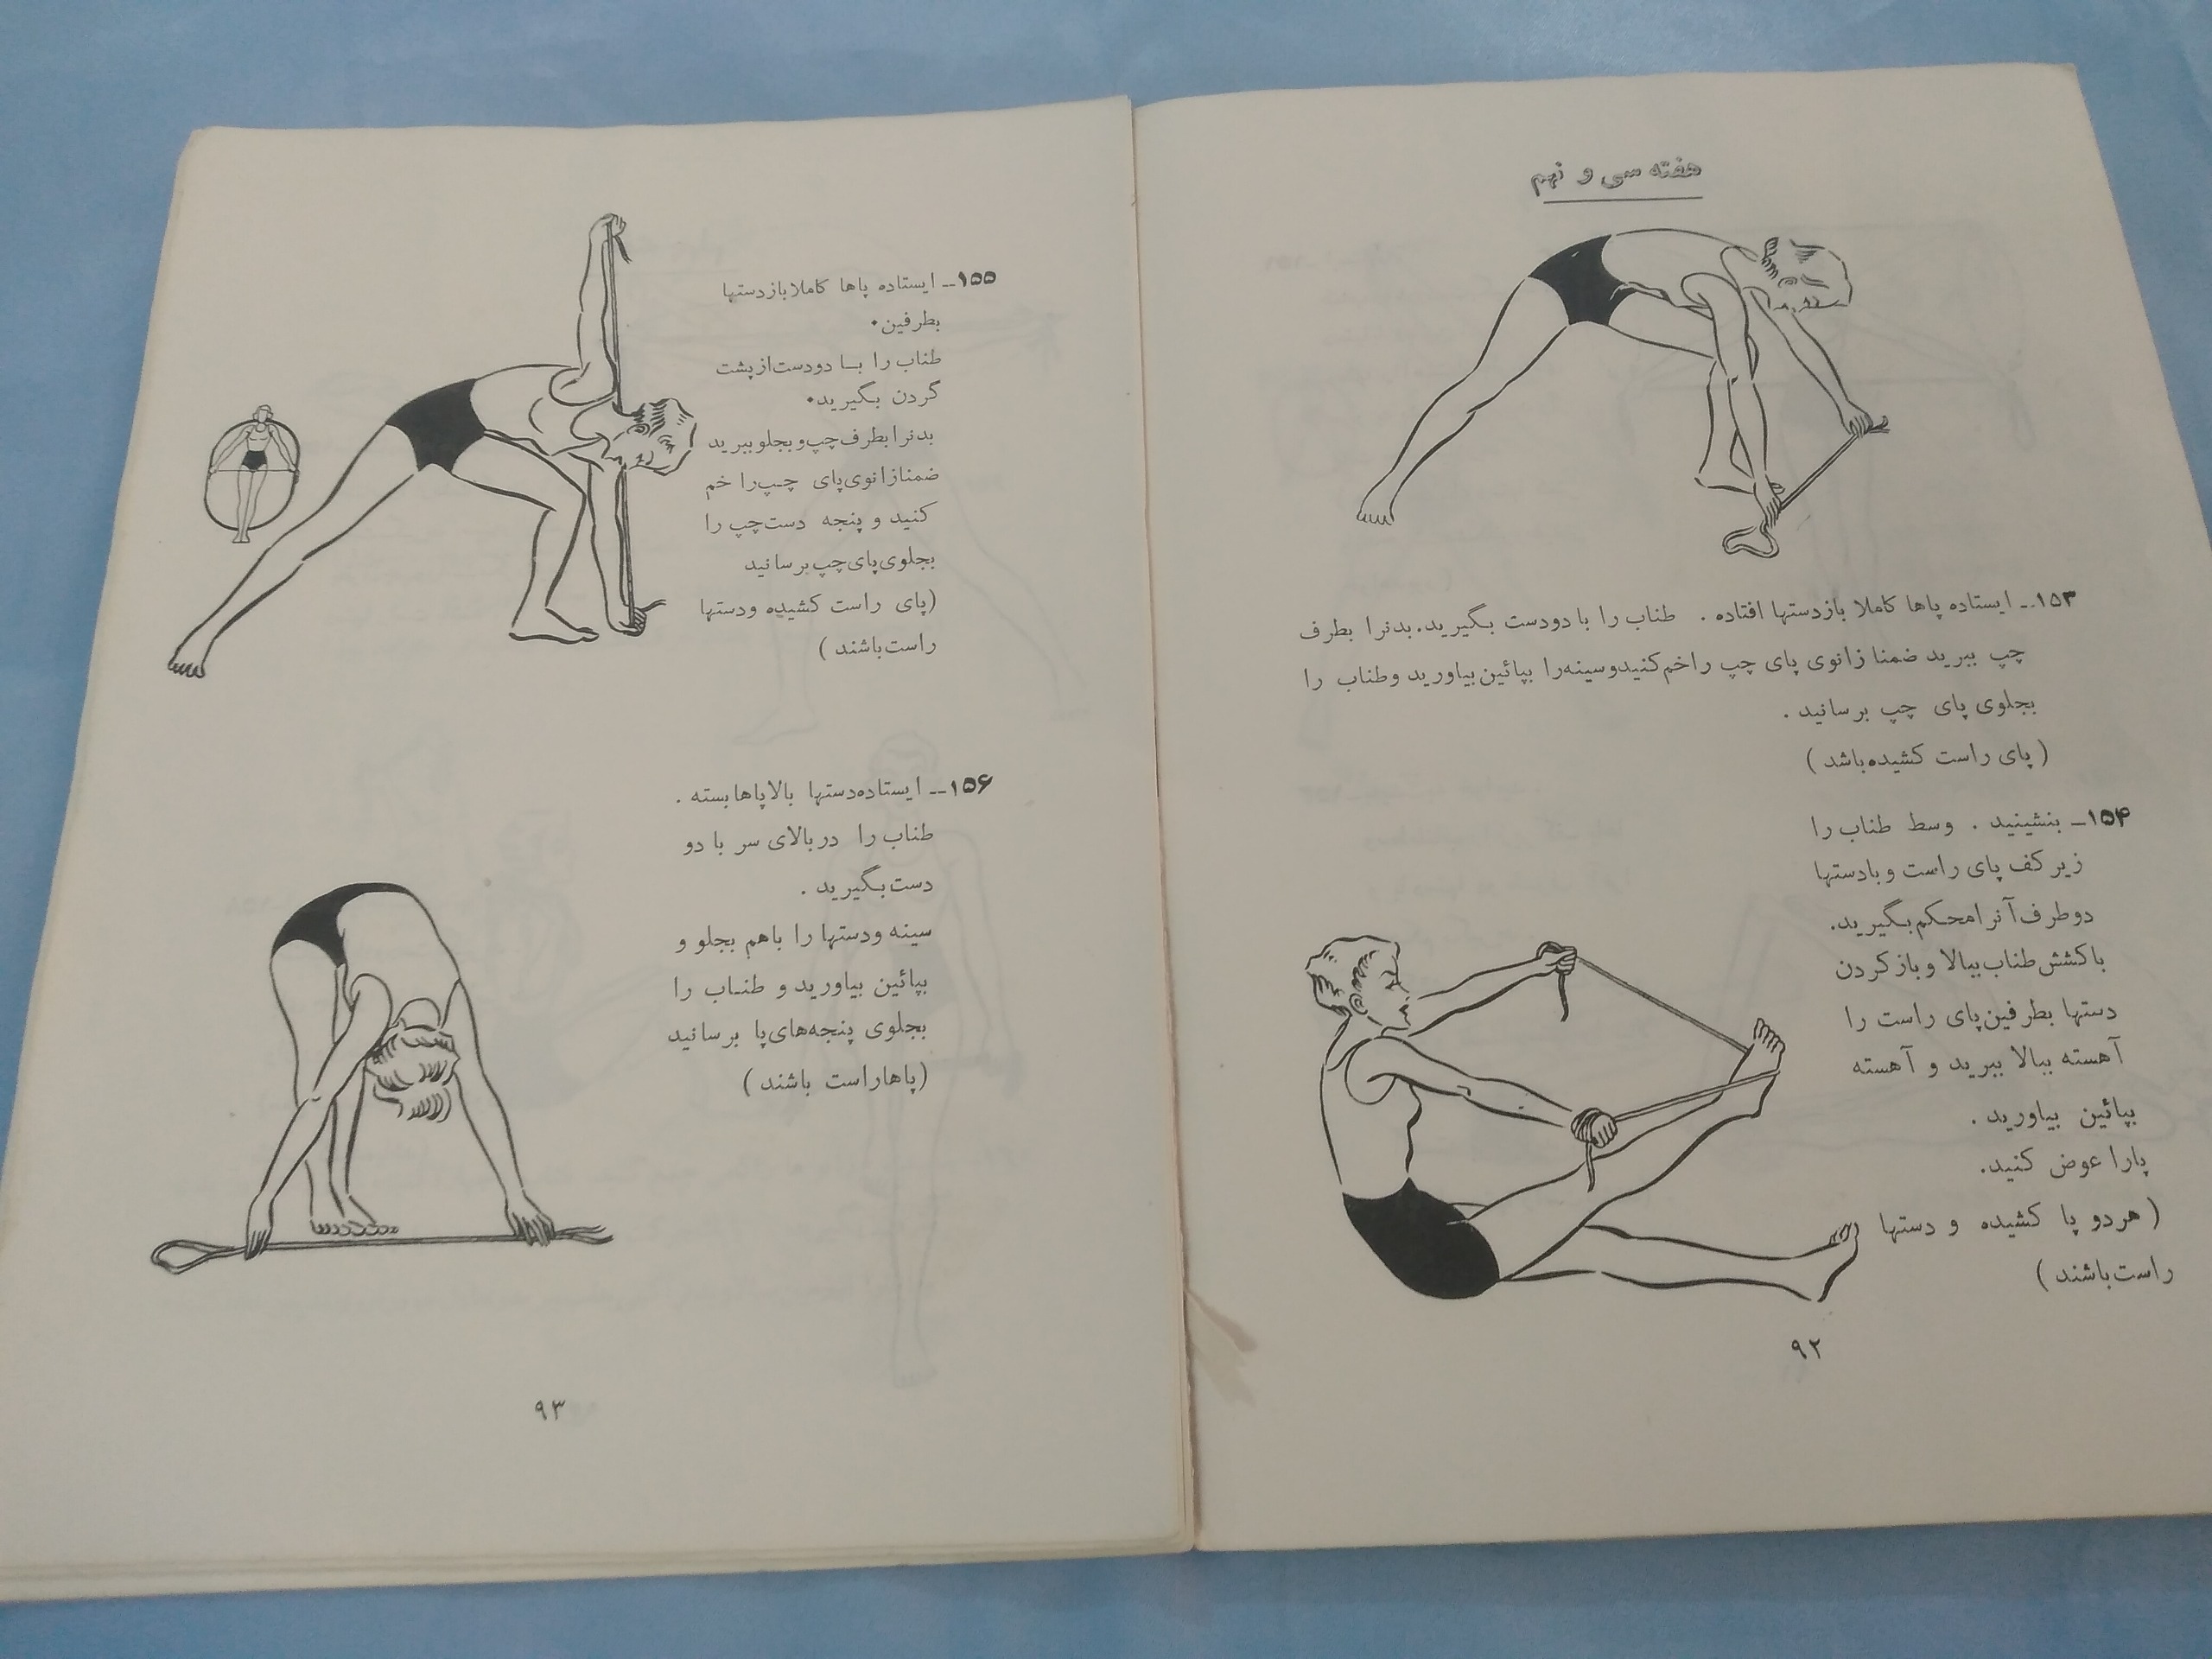 هفته سی و نهم
۱۵۳ــ ایستاده پاها کاملا بازدستها افتاده . طناب را با دودست بگیرید. بدنرا بطرف
چپ ببرید ضمنا زانوی پای چپ راخم‌کنیدوسینه‌را بپائین‌بیاورید وطناب را
بجلوی پای چپ برسانید .
( پای راست کشیده‌باشد )
۱۵۴ــ بنشینید . وسط طناب را
زیر کف پای راست وبادستها
دوطرف‌آنرامحکم‌بگیرید.
باکشش‌طناب‌ببالا وبازکردن
دستها بطرفین‌پای راست را
آهسته ببالا ببرید و آهسته
بپائین بیاورید .
پارا عوض کنید.
( هردو پا کشیده و دستها
راست‌باشند )
۹۲
۱۵۵ــ ایستاده پاها کاملابازدستها
بطرفین.
طناب را بــا دودست‌ازپشت
گردن بگیرید.
بدنرابطرف‌چپ‌وبجلوببرید
ضمنازانوی‌پای چــپ‌را خم
کنید و پنجه دست‌چپ را
بجلوی‌پای‌چپ‌برسانید
(پای راست کشیده ودستها
راست‌باشند )
۱۵۶ــ ایستاده‌دستها بالاپاهابسته .
طناب را در بالای سر با دو
دست‌بگیرید .
سینه ودستها را باهم بجلو و
بپائین بیاورید و طنــاب را
بجلوی پنجه‌های‌پا برسانید
(پاهاراست باشند )
۹۳